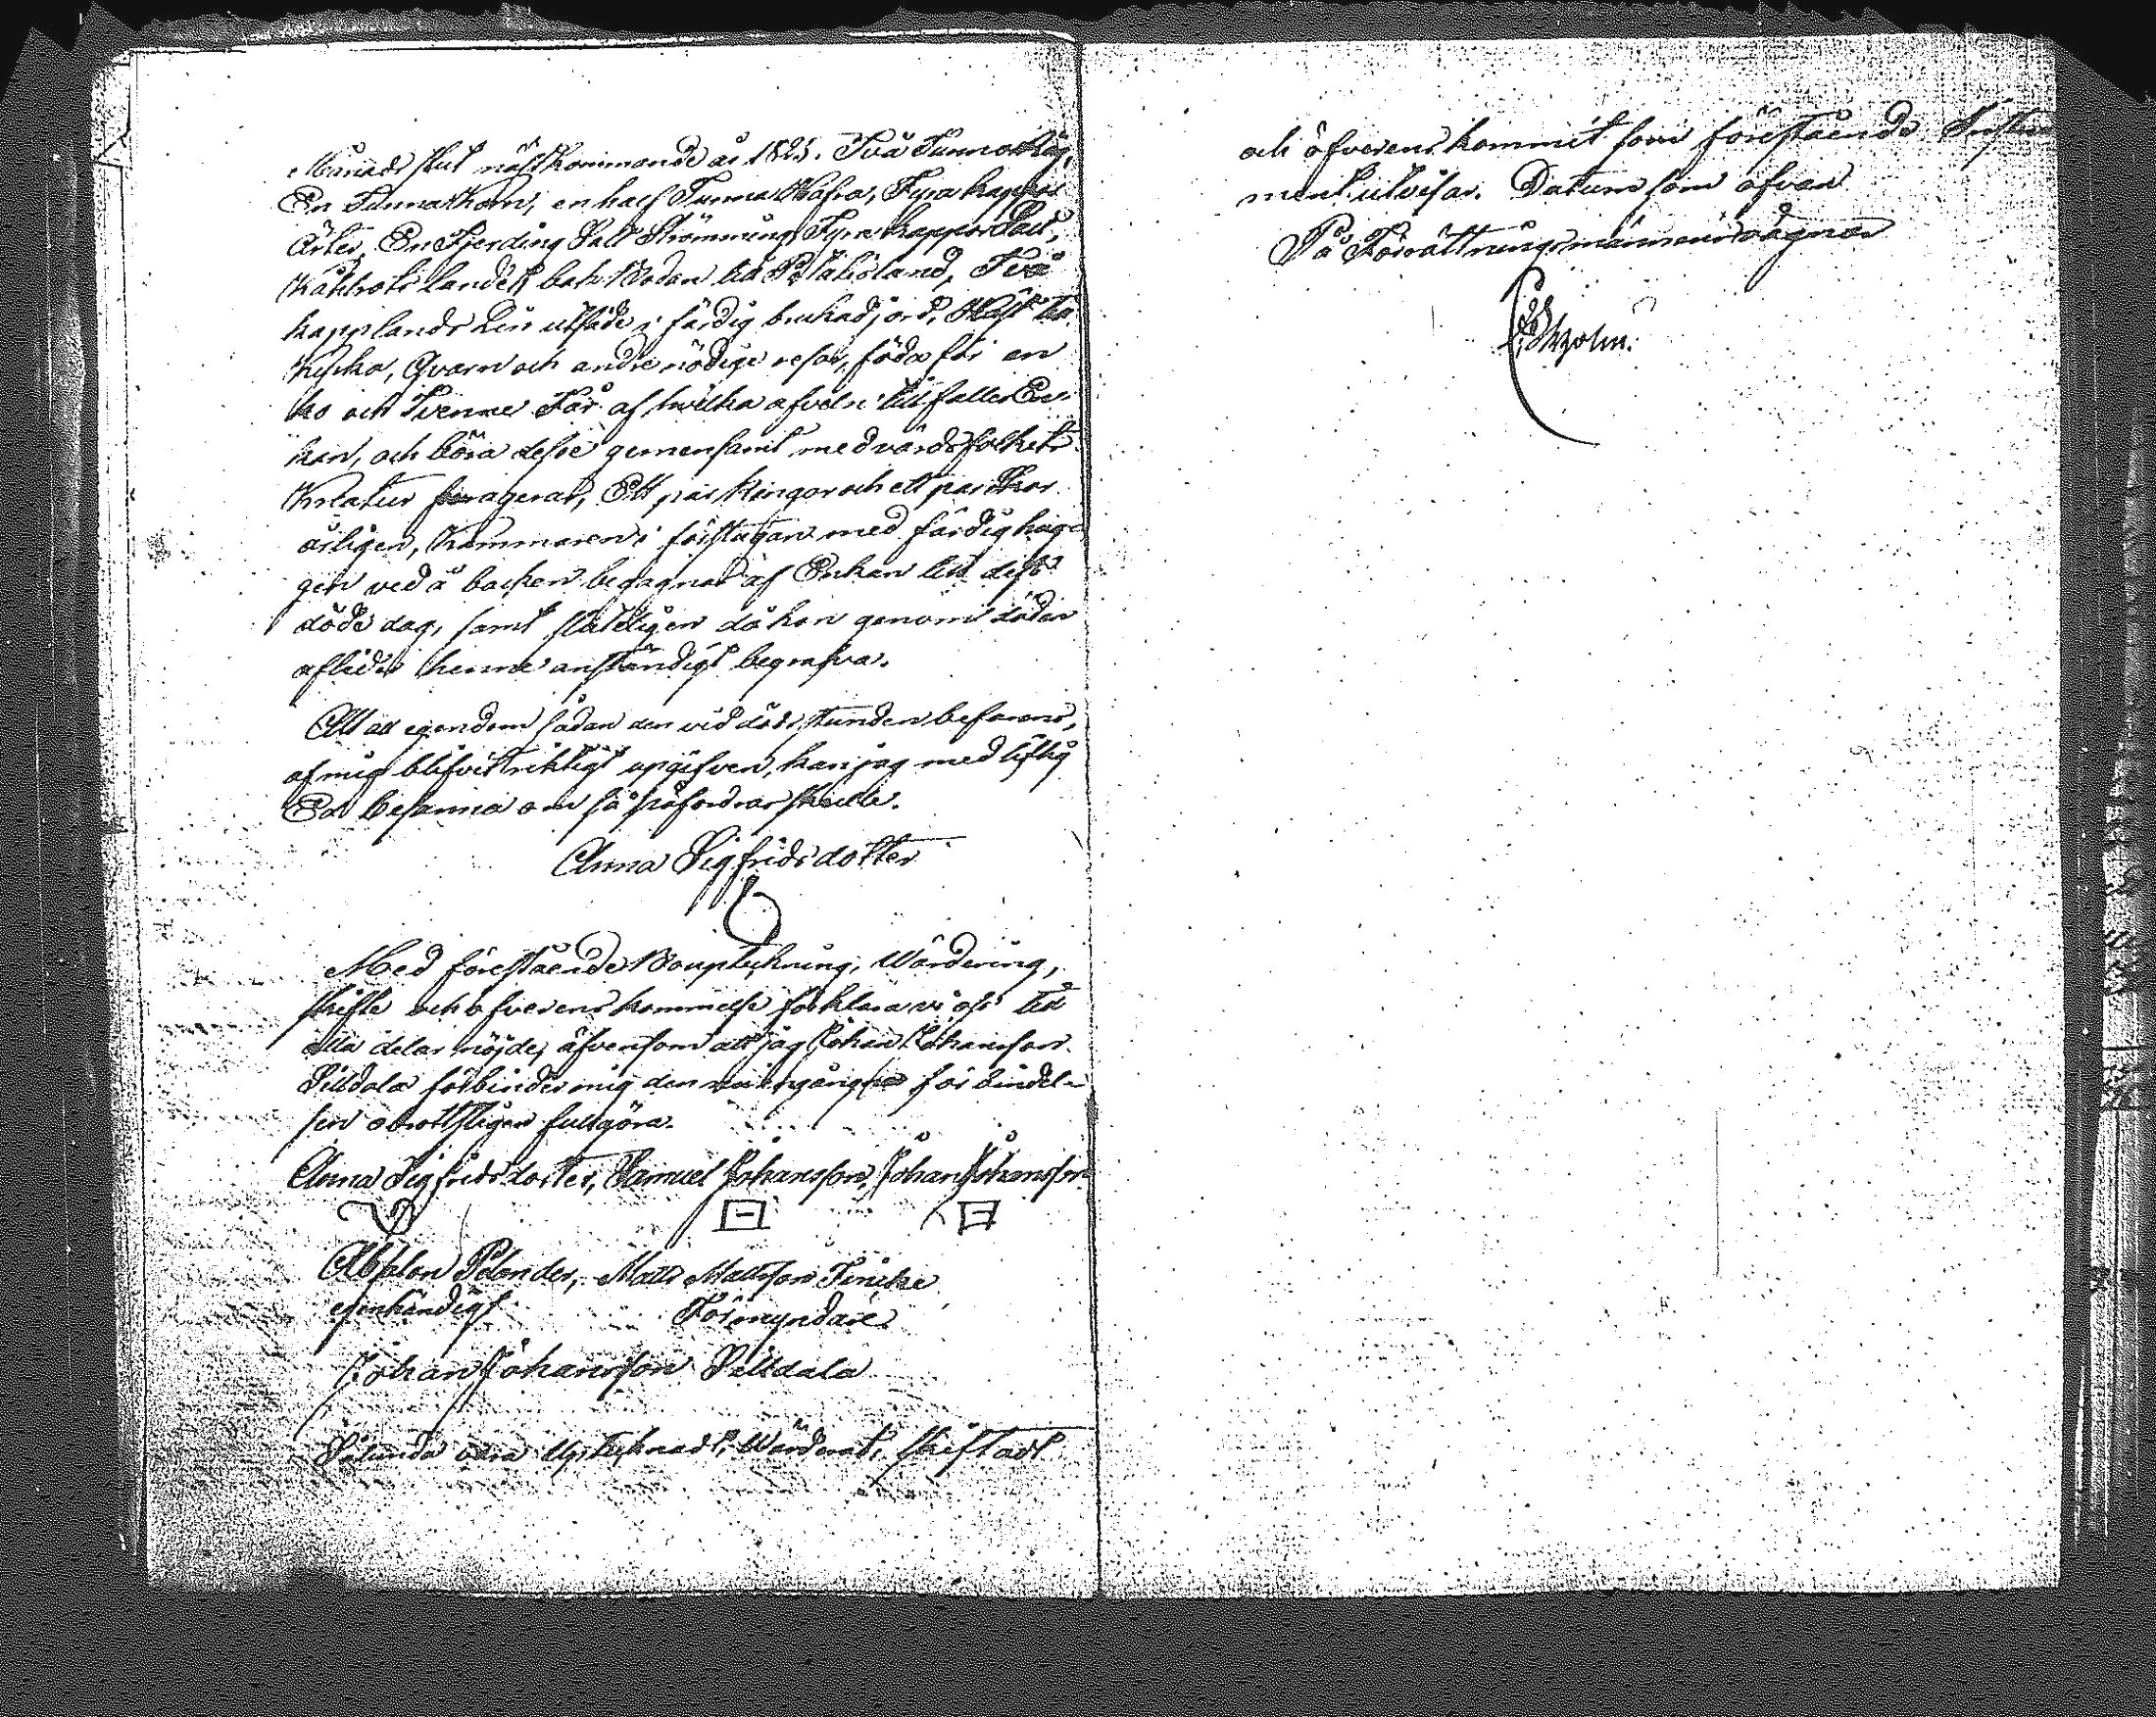 Månads slut nästkommande år 1825. Två Tunnor Råg,
En Tunna Korn, en half Tunna Hafra, Fyra kappar
Ärter, En Fjerding Salt Strömming, Fyra kappar Salt,
Kålrots landet bak Bodan till Potatisland, Två
kapplands Lin utsäde i färdig brukad jord, Häst till
Kyrka, Qvarn och andre nödige resor, föda för en
ko och Tvenne Får af hvilka afveln tillfaller En-
kan, och böra desse gemensamt med värdsfolkets
Kreatur fouragerar, Ett par Kängor och ett par Skor
årligen, Kammaren i förstugan med färdig hug-
gen ved å backen begagnas af Enkan till dess
döde dag, samt sluteligen då hon genom döden
aflider henne anständigt begrafva.
Att all egendom sådan den vid dödsstunden befanns,
af mig blifvit riktigt upgifven, kan jag med liflig
Ed besanna om så påfordras skulle.
Anna Sigfridsdotter
Med förestående Bouptekning, Wärdering,
skifte och öfverenskommelse förklara vi oss till
alla delar nöjde, äfvensom att jag Johan Johansson
Silldala förbinder mig den meringångne förbindel-
sen obrottsligen fullgöra.
Anna Sigfridsdotter, Samuel Johansson, Johan Johansson
Absalon Polander, Matts Mattsson Fincke
egenhändigt Förmyndare
Johan Johansson Silldala
Sålunda vara Uptecknadt, Wärderat, skiftadt
och öfverenskommit som förestående Instru-
ment utvisar. Datum som ofvan
På Förrättningsmännens vägnar